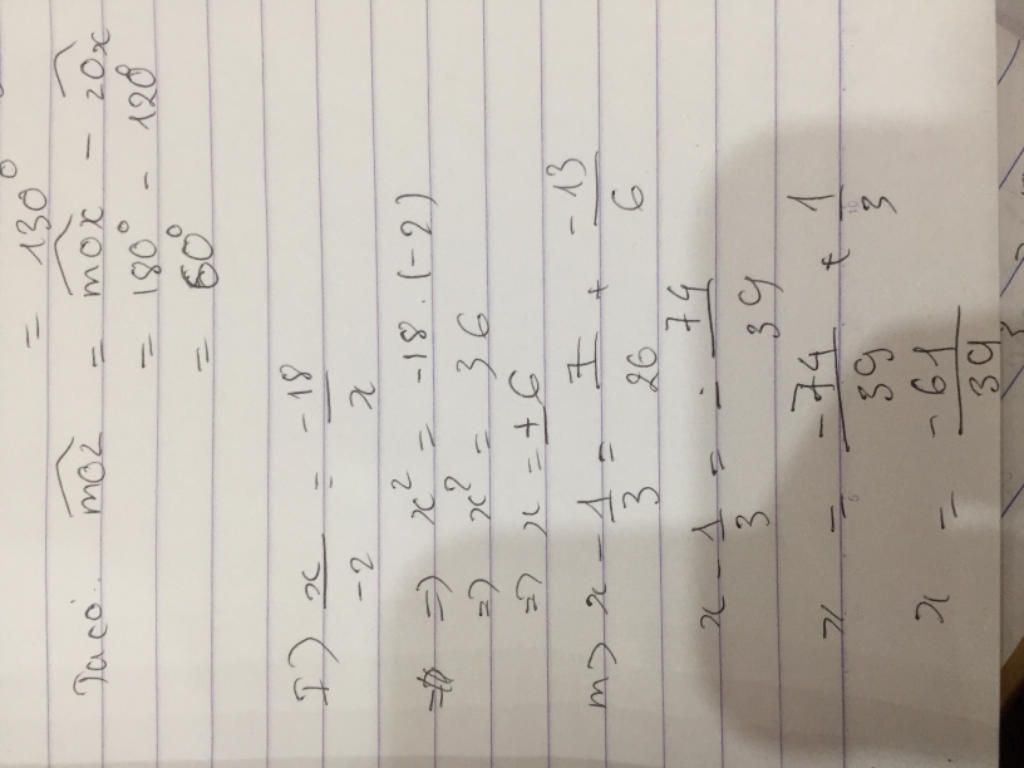 = 130°
Ta có: mOz = mOx - zOx
= 180° - 120°
= 60°
I) x/-2 = -18/x
=> x² = -18.(-2)
=> x² = 36
=> x = ±6
m) x - 1/3 = 7/26 + -13/6
x - 1/3 = -74/39
x = -74/39 + 1/3
x = -61/39